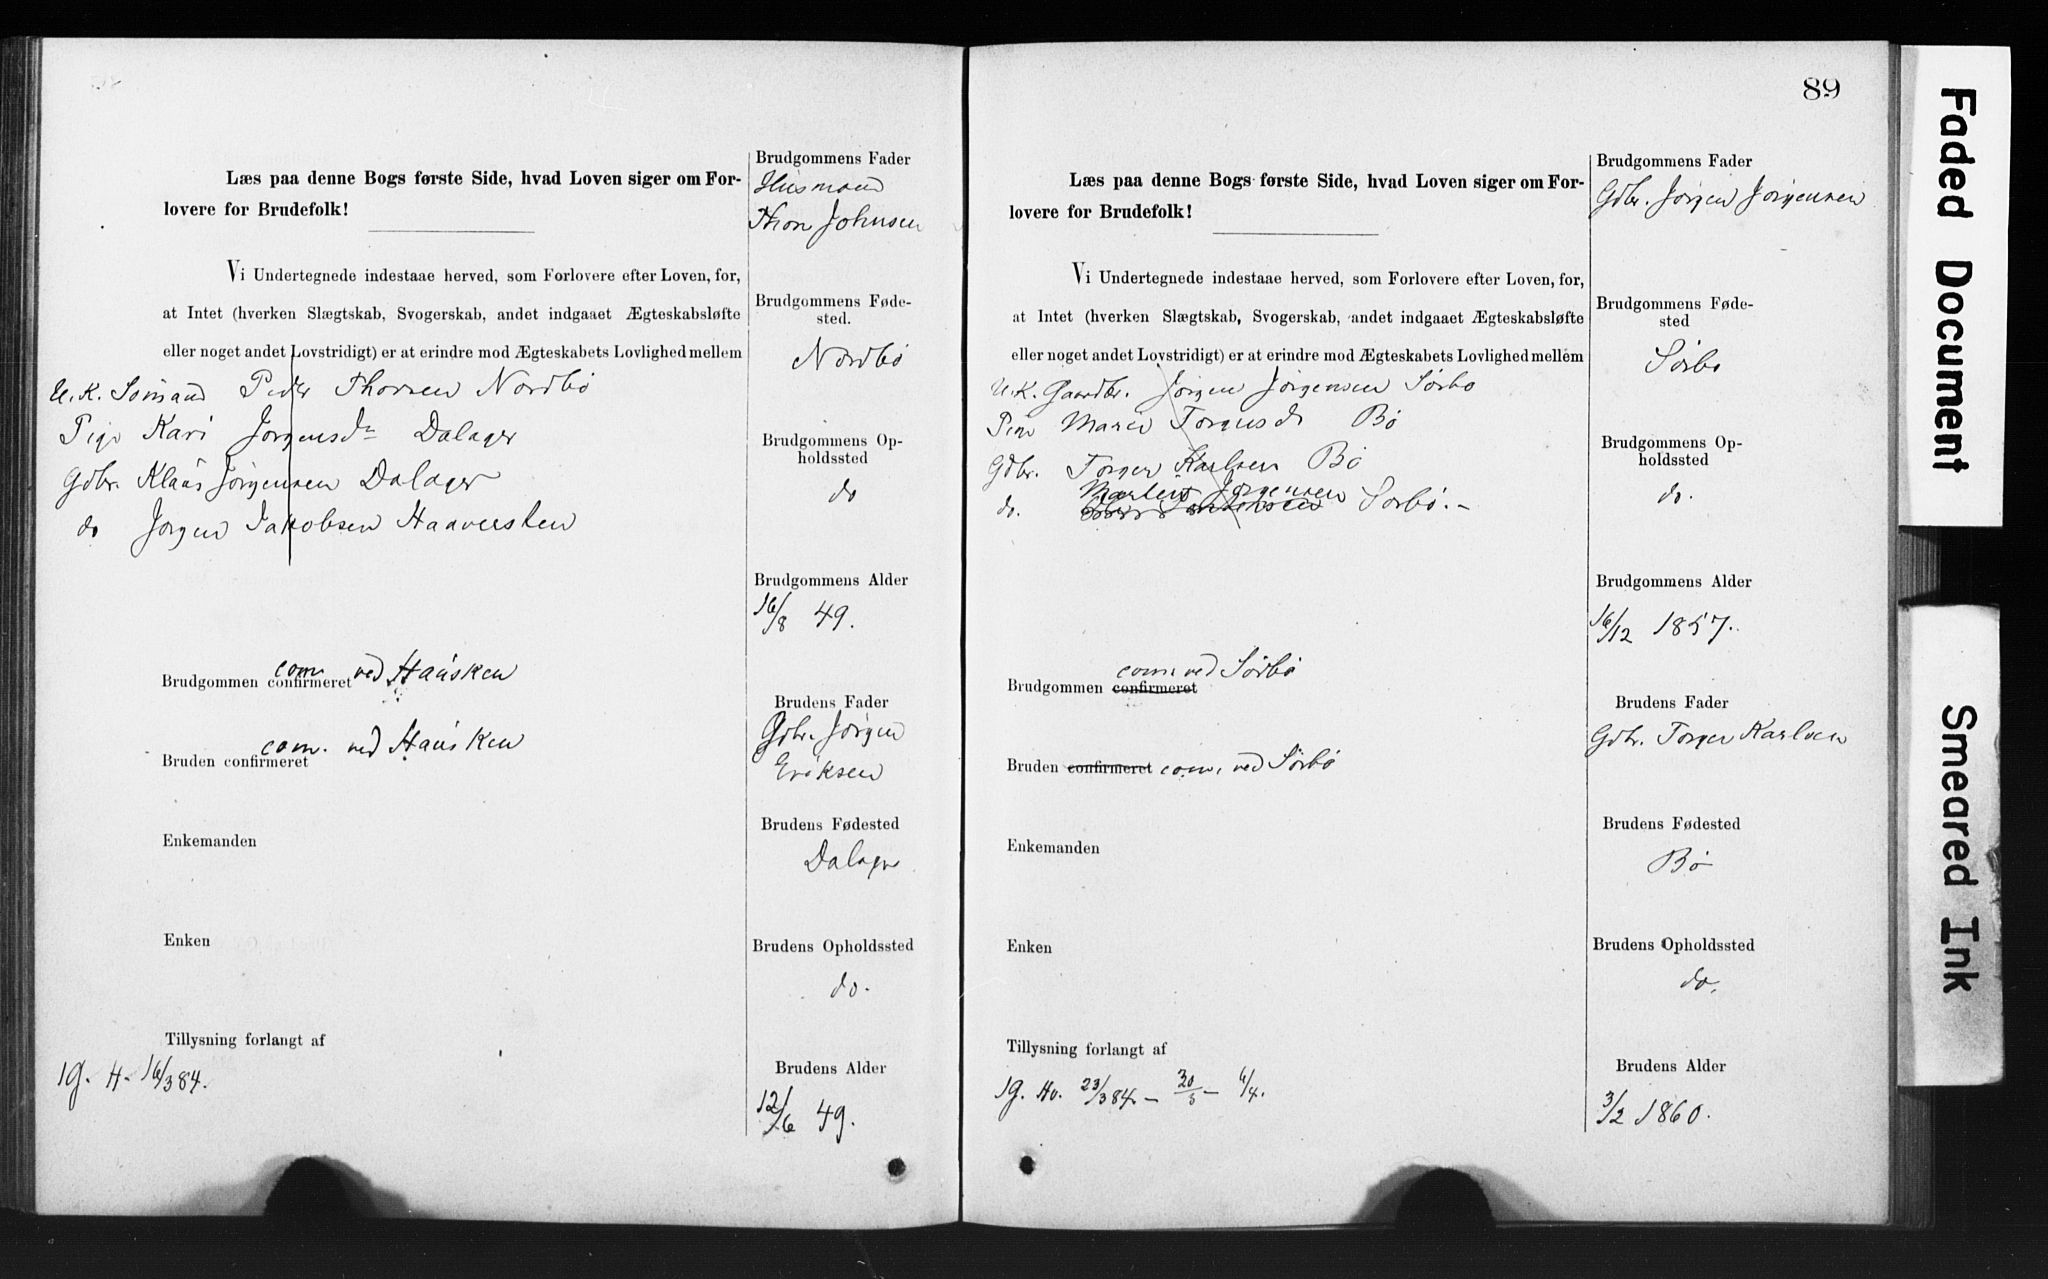 Læs paa denne Bogs første Side, hvad Loven siger om For-
lovere for Brudefolk!
Vi Undertegnede indestaae herved, som Forlovere efter Loven, for,
at Intet (hverken Slægtskab, Svogerskab, andet indgaaet Ægteskabsløfte
eller noget andet Lovstridigt) er at erindre mod Ægteskabets Lovlighed mellem
U. K. Sömand Peder Thorsen Nordbö
Pige Kari Jörgensdr Dalager
Gdbr. Klaus Jörgensen Dalager
do Jörgen Jakobsen Haaversken
Brudgommen confirmeret com. ved Hausken
Bruden confirmeret com. ved Hausken
Enkemanden
Enken
Tillysning forlangt af
1 g. H. 16/3 84.
Brudgommens Fader
Husmand
Thore Johnsen
Brudgommens Føde-
sted.
Nordbö
Brudgommens Op-
holdssted
do
Brudgommens Alder
16/8 49.
Brudens Fader
Gdbr. Jörgen
Eriksen
Brudens Fødested
Dalager
Brudens Opholdssted
do.
Brudens Alder
12/6 49.
89
Læs paa denne Bogs første Side, hvad Loven siger om For-
lovere for Brudefolk!
Vi Undertegnede indestaae herved, som Forlovere efter Loven, for,
at Intet (hverken Slægtskab, Svogerskab, andet indgaaet Ægteskabsløfte
eller noget andet Lovstridigt) er at erindre mod Ægteskabets Lovlighed mellem
U. K. Gaardbr. Jörgen Jörgensen Sörbö
Pige Marie Torgersdr Bö
Gdbr. Torger Karlsen Bö
Martin Jörgensen
do. Sörbö.-
Brudgommen confirmeret com. ved Sörbö
Bruden confirmeret com. ved Sörbö
Enkemanden
Enken
Tillysning forlangt af
1 g. Hv. 23/3 84 - 30/3 - 6/4.
Brudgommens Fader
Gdbr. Jörgen Jörgensen
Brudgommens Føde-
sted
Sörbö
Brudgommens Op-
holdssted
do.
Brudgommens Alder
16/12 1857.
Brudens Fader
Gdbr. Torger Karlsen
Brudens Fødested
Bö
Brudens Opholdssted
do.
Brudens Alder
3/2 1860.
Faded Document
Smeared Ink